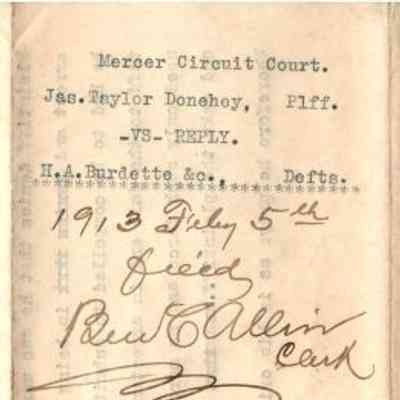 Mercer Circuit Court.
Jas.Taylor Donehoy, Plff.
-VS- REPLY.
H.A.Burdette &c., Defts.
*******************************
1913 Feby 5th
filed
Ben C Allin
Clerk